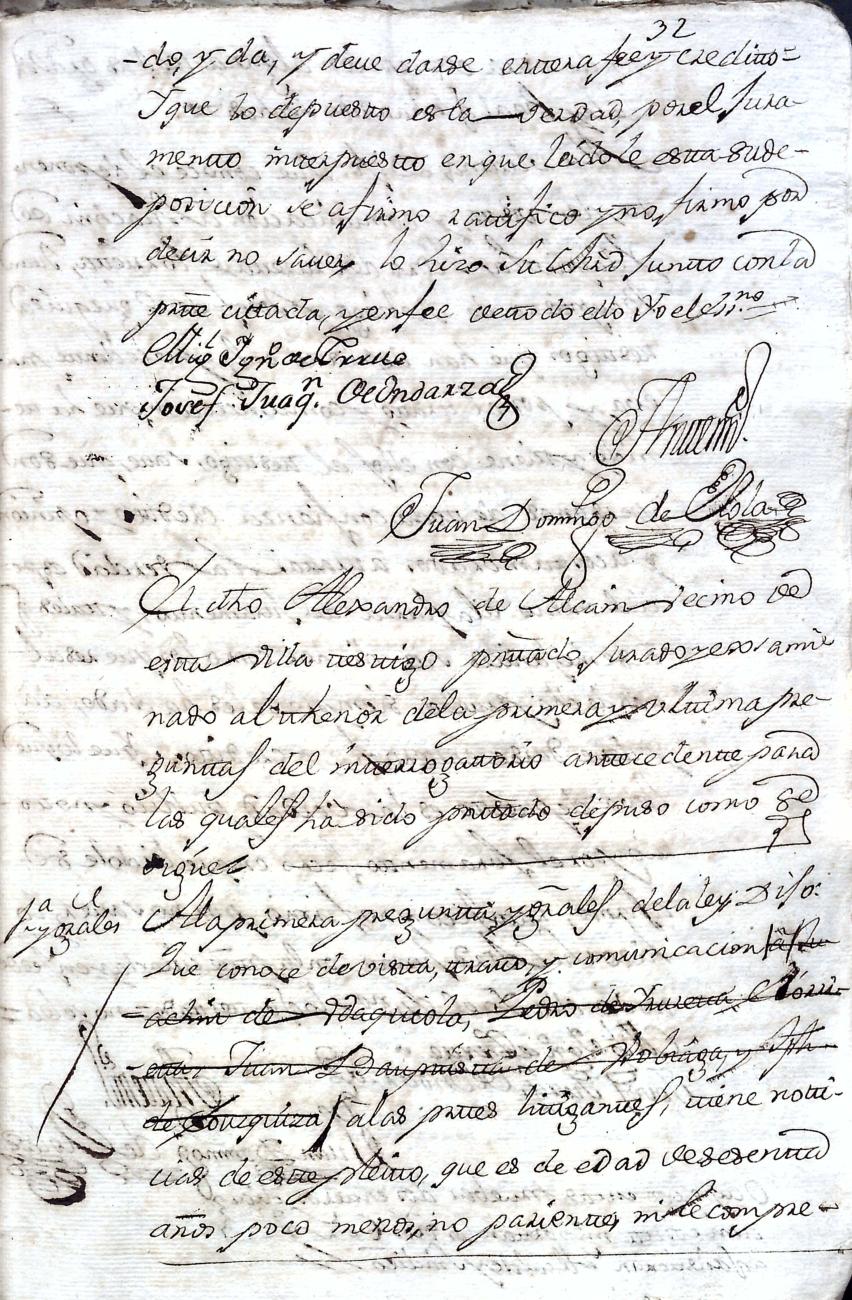 32
-do, y da, y deve darse entera fee y creditto=
Y que lo depuestto es la verdad por el Jura-
mentto interpuestto en que leidole esta su de-
posicion se afirmo ratifico y no firmo por
decir no saver, lo hizo su Mrd juntto con la
prte cittada, y en fee de ttodo ello Yo el Ssno
Migl Ignº de Yrrue
Josef Juaqn. de Ondarza
Antemi.
Juan Domingo de
El dho Alexandro de Alcain vecino de
esta villa testtigo prentado, jurado y exami-
nado al thenor de la primera y ulttima pre-
guntas del interrogattorio anttecedentte para
las quales ha sido prentado depuso como se
sigue
1ª y grales
A la primera pregunta, y grales de la ley Dijo:
Que conoce de vistta, tratto, y comunicacion a Jua-
achin de Pedro de
Juan Baupttista de y Jph
de a las prtes litigantes, tiene notti-
cias de este pleitto, que es de edad de sesentta
años poco menos, no parientte, ni le compre-